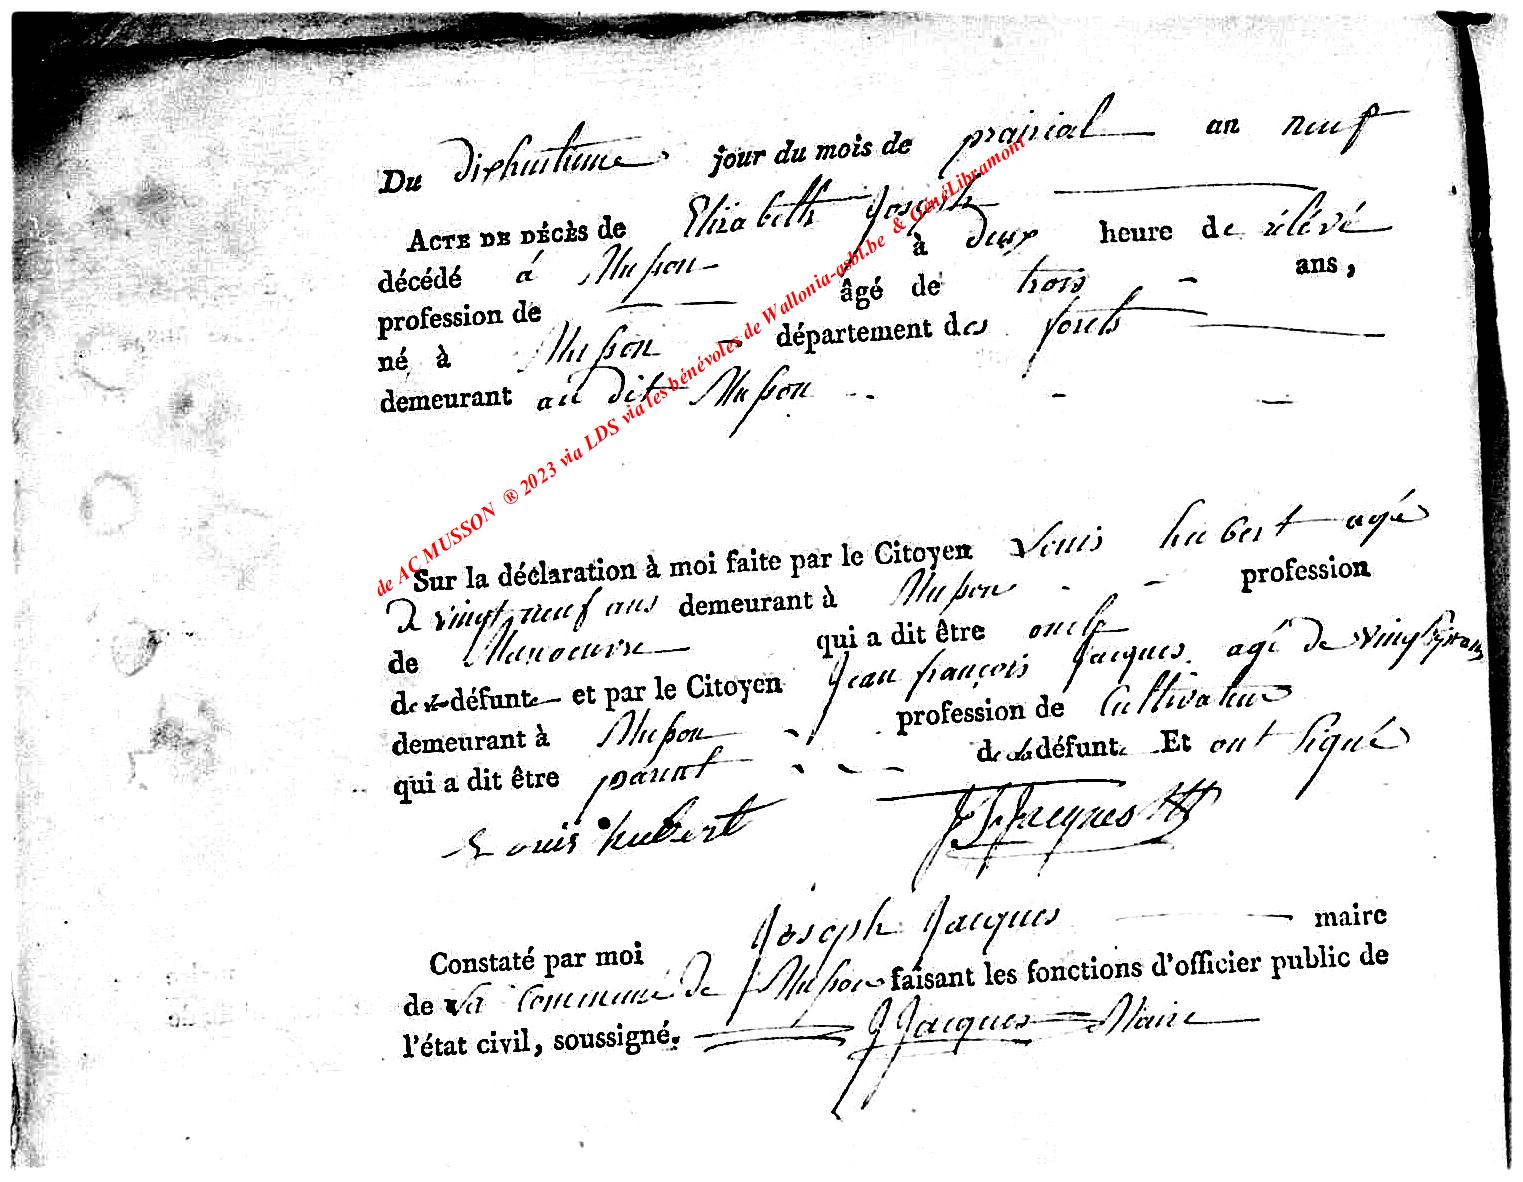 Du dixhuitieme jour du mois de prairial an neuf
ACTE DE DÉCÈS de Elizabeth Joseph
décédé à Musson à deux heure de rélévé
profession de âgé de trois ans,
né à Musson département des forets
demeurant au dit Musson
de AC MUSSON ® 2023 via LDS via les bénévoles de Wallonia-asbl.be & GénéLibramont
Sur la déclaration à moi faite par le Citoyen Louis hubert agé
de vingt neuf ans demeurant à Musson profession
de Manoeuvre qui a dit être oncle
de la défunte et par le Citoyen Jean françois Jacques agé de
demeurant à Musson profession de Cultivateur
qui a dit être parent de la défunte Et ont signé
Louis hubert J f Jacques
Constaté par moi Joseph Jacques maire
de la commune de Musson faisant les fonctions d'officier public de
l'état civil, soussigné. J Jacques Maire